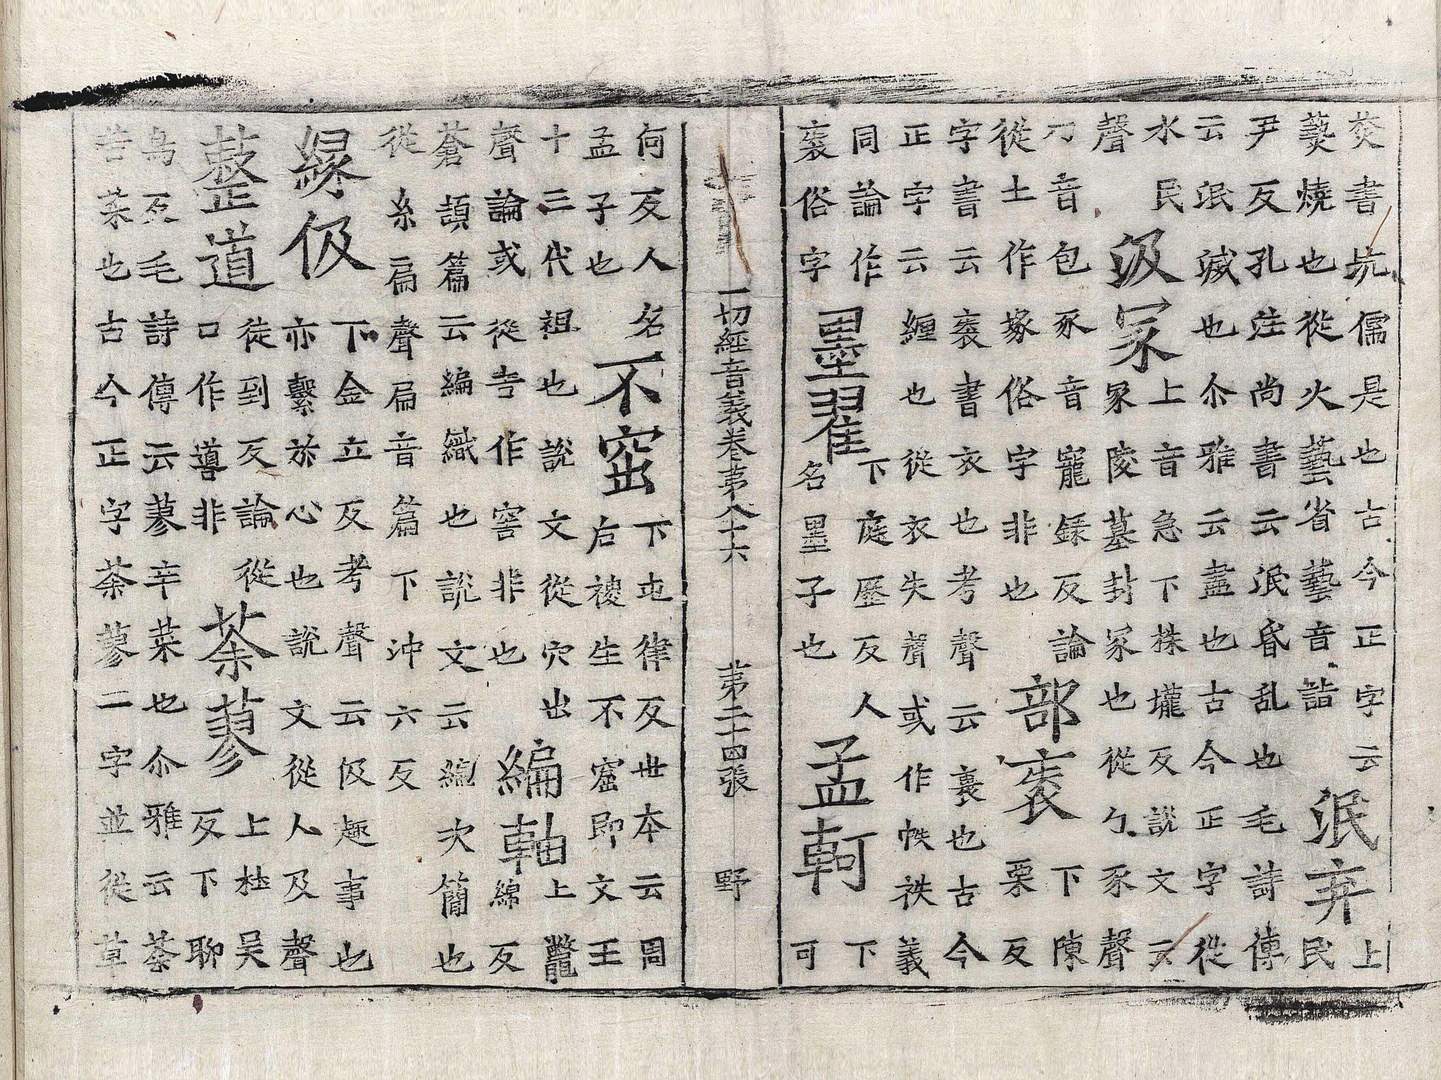 焚書坑儒是也古今正字云
㸑燒也從火藝省藝音詣
泯弃
上
民
尹反孔注尚書云泯昬乱也毛詩傳
云泯滅也尒雅云盡也古今正字從
水民
聲
汲冢
上音急下株壠反説文云
冢陵墓封冢也從勹豖聲
刁音包豖音寵録反論
從土作塚俗字非也
部袠
下陳
栗反
字書云袠書衣也考聲云裹也古今
正字云纏也從衣失聲或作帙袟義
同論作
袠俗字
墨翟
下庭歷反人
名墨子也
孟軻
下
可
一切經音義卷第八十六 第二十四張 野
何反人名
孟子也
不窋
下屯律反世本云周
后稷生不窟即文王
十三代祖也說文從穴出
聲論或從告作窖非也
編軸
上鼈
綿反
蒼頡篇云編織也說文云編次簡也
從糸扁聲扁音篇下沖六反
緣伋
下金立反考聲云伋趣事也
亦繫於心也說文從人及聲
整道
徒到反論從
口作導非
荼蓼
上杜吴
反下聊
鳥反毛詩傳云蓼辛菜也尒雅云荼
苦菜也古今正字荼蓼二字並從草